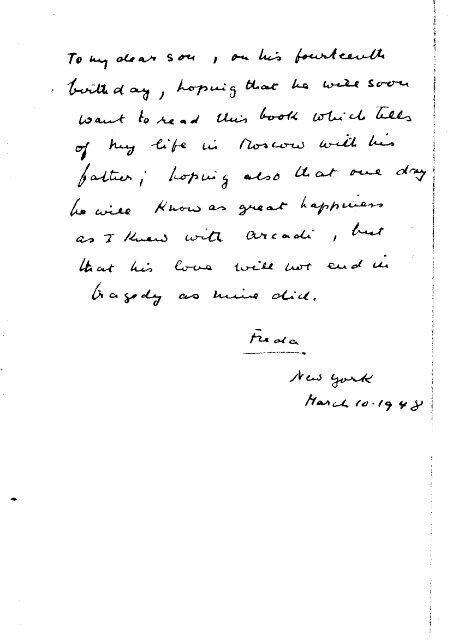 To my dear son, on his fourteenth
birthday, hoping that he will soon
want to read this book which tells
of my life in Moscow with his
father; hoping also that one day
he will know as great happiness
as I knew with Arcadi, but
that his love will not end in
tragedy as mine did.
Freda
New York
March 10. 1948